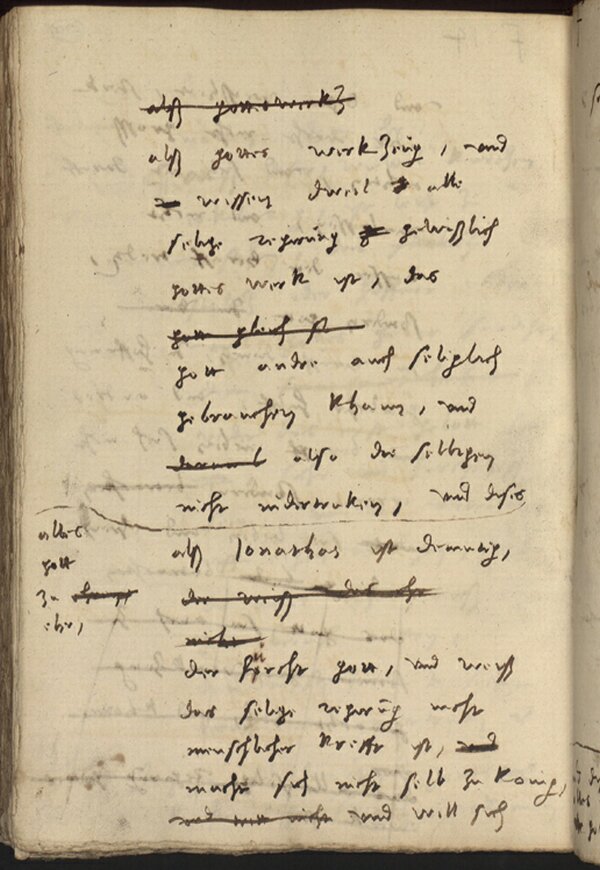 alß gotteswerkz
alß gottes werkzeug, und
wissen dweil alle
selige regirung gewißlich
gottes werk ist, das
gott gleich ist
gott andre auch seliglich
gebrauchen khann, und
darumb also die selbigen
nicht nidertruken, und dises
alles
gott
zu
ehr,
alß Jonathas ist demutig,
der weiß das ehr
nicht
der fürcht gott, und weiß
das selige regirung nicht
menschlicher krefft ist, und
macht sich nicht selb zu konig,
und will nicht und will sich